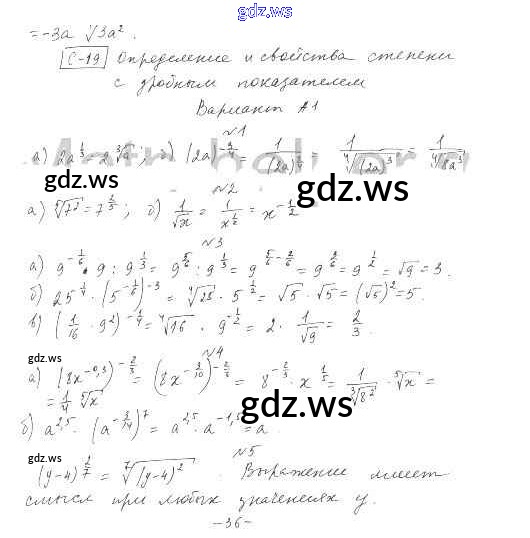 gdz.ws
= -3a ∜3a².
С-19 Определение и свойства степени
с дробным показателем
Вариант А1
№1
а) 2a^(1/3) = 2∛a; б) (2a)^(-3/4) = 1/(2a)^(3/4) = 1/∜(2a)³ = 1/∜8a³
gdz.ws gdz.ws
№2
а) ⁵√7² = 7^(2/5); б) 1/√x = 1/x^(1/2) = x^(-1/2)
№3
а) 9^(-1/6) · 9 : 9^(1/3) = 9^(5/6) : 9^(1/3) = 9^(5/6 - 2/6) = 9^(3/6) = 9^(1/2) = √9 = 3.
б) 25^(1/4) · (5^(-1/6))^(-3) = ∜25 · 5^(1/2) = √5 · √5 = (√5)² = 5.
в) (1/16 · 9²)^(-1/4) = ∜16 · 9^(-1/2) = 2 · 1/√9 = 2/3.
gdz.ws gdz.ws
№4
а) (8x^(-0,3))^(-2/3) = (8x^(-3/10))^(-2/3) = 8^(-2/3) · x^(1/5) = 1/∛8² · ⁵√x =
= 1/4 ⁵√x
б) a^(2,5) · (a^(-3/14))^7 = a^(2,5) · a^(-1,5) = a.
gdz.ws gdz.ws
№5
(y-4)^(2/7) = ⁷√(y-4)². Выражение имеет
смысл при любых значениях y.
gdz.ws gdz.ws
-36-